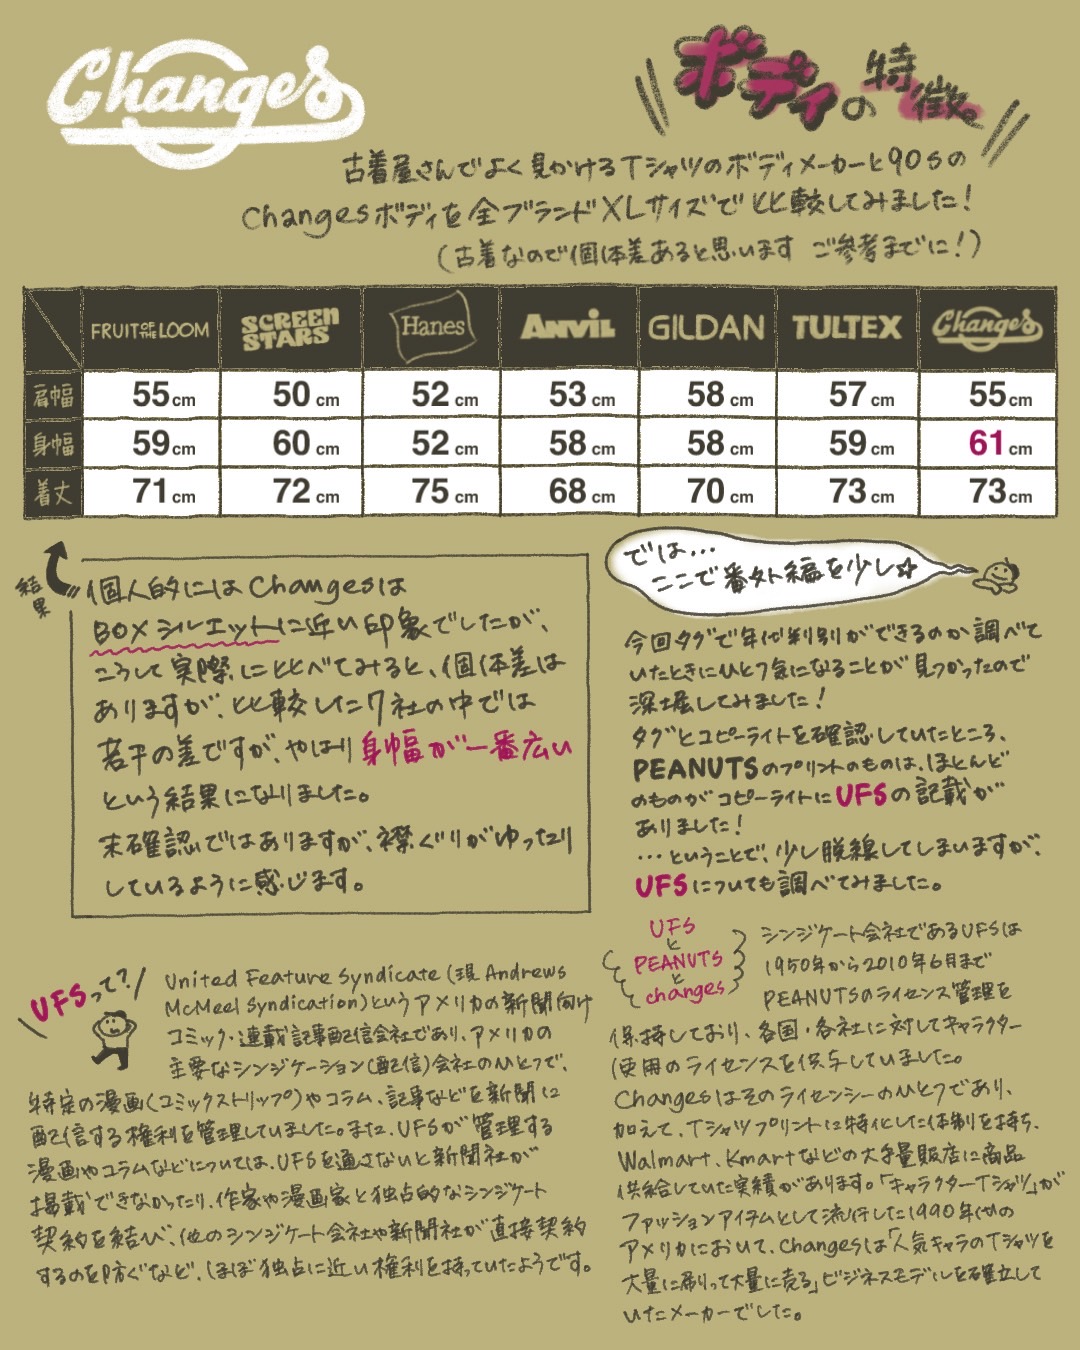 Changes
ボディの特徴。
古着屋さんでよく見かけるTシャツのボディメーカーと90sの
Changesボディを全ブランドXLサイズで比較してみました!
(古着なので個体差あると思います ご参考までに!)
FRUIT OF THE LOOM SCREEN STARS Hanes ANVIL GILDAN TULTEX Changes
肩幅 55cm 50cm 52cm 53cm 58cm 57cm 55cm
身幅 59cm 60cm 52cm 58cm 58cm 59cm 61cm
着丈 71cm 72cm 75cm 68cm 70cm 73cm 73cm
結果
個人的にはChangesは
BOXシルエットに近い印象でしたが、
こうして実際に比べてみると、個体差は
ありますが、比較した7社の中では
若干の差ですが、やはり身幅が一番広い
という結果になりました。
未確認ではありますが、襟ぐりがゆったり
しているように感じます。
では...
ここで番外編を少し☆
今回タグで年代判別ができるのか調べて
いたときにひとつ気になることが見つかったので
深堀してみました!
タグとコピーライトを確認していたところ、
PEANUTSのプリントのものは、ほとんど
のものがコピーライトにUFSの記載が
ありました!
...ということで、少し脱線してしまいますが、
UFSについても調べてみました。
UFSって?
United Feature Syndicate (現 Andrews
McMeel Syndication)というアメリカの新聞向け
コミック・連載記事配信会社であり、アメリカの
主要なシンジケーション(配信)会社のひとつで、
特定の漫画(コミックストリップ)やコラム、記事などを新聞に
配信する権利を管理していました。また、UFSが管理する
漫画やコラムなどについては、UFSを通さないと新聞社が
掲載できなかったり、作家や漫画家と独占的なシンジケート
契約を結び、他のシンジケート会社や新聞社が直接契約
するのを防ぐなど、ほぼ独占に近い権利を持っていたようです。
UFS
と
PEANUTS
と
changes
シンジケート会社であるUFSは
1950年から2010年6月まで
PEANUTSのライセンス管理を
保持しており、各国・各社に対してキャラクター
使用のライセンスを供与していました。
Changesはそのライセンシーのひとつであり、
加えて、Tシャツプリントに特化した体制を持ち、
Walmart、Kmartなどの大手量販店に商品
供給していた実績があります。「キャラクターTシャツ」が
ファッションアイテムとして流行した1990年代の
アメリカにおいて、Changesは「人気キャラのTシャツを
大量に刷って大量に売る」ビジネスモデルを確立して
いたメーカーでした。